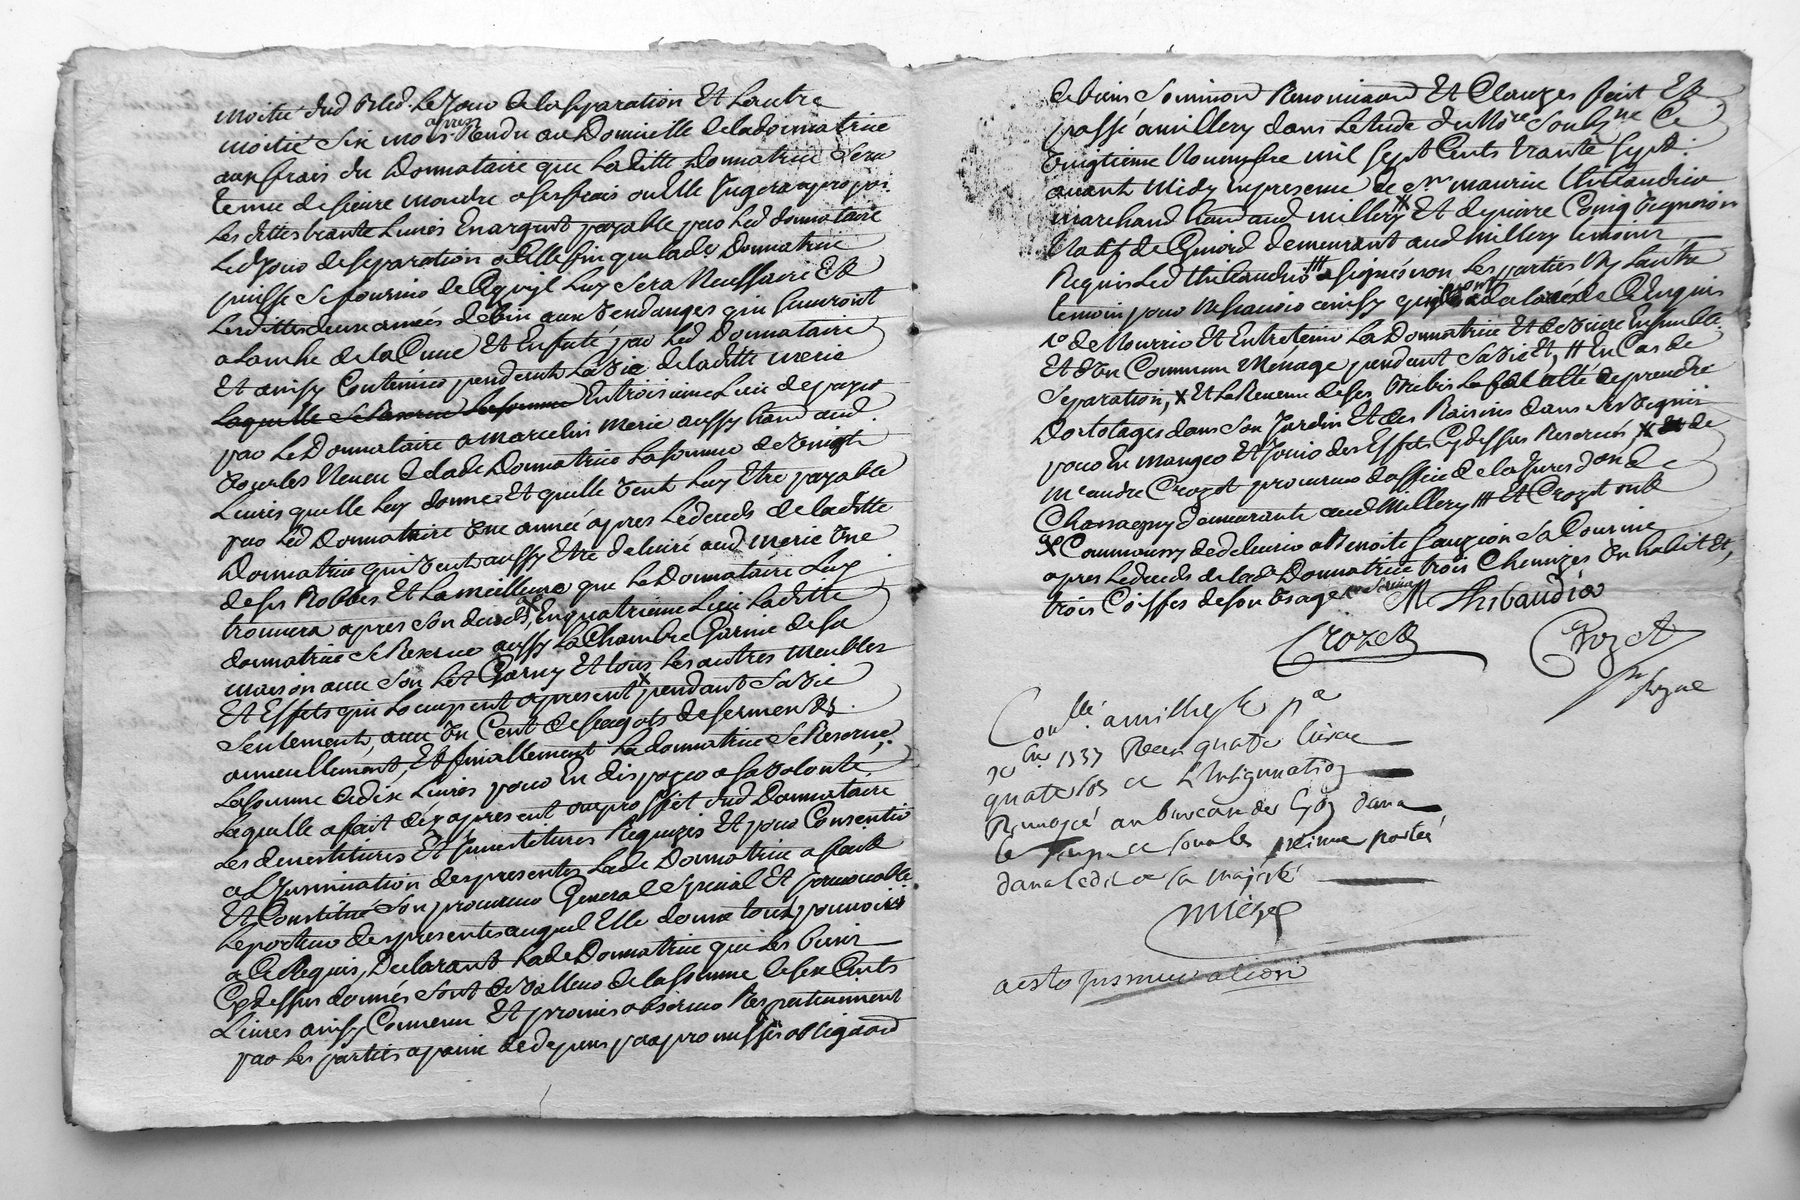 moitié dud Bled. Le Jour de la Separation Et Lautre
moitié Six mois apres Rendu au Domicille de la donnatrice
aux frais du Donnataire que Laditte Donnatrice Sera
tenue de faire moudre a ses frais ou Elle Jugera apropos
Les dittes trante Livres En argent payable par Led donnataire
Led Jour de Separation a Celle fin que lade Donnatrice
puisse Se fournir de Ce quil Luy Sera Necessaire Et
Lesdittes deux années de vin aux Vendanges qui Suivront
a Lanche de la Cuve Et Enfuté par Led Donnataire
Et ainssy Continuer pendant La Vie de laditte merie
En troisieme Lieu de payer
par Le Donnataire a Marcelin Merie aussy dud.
Neveu de lade Donnatrice La Somme de Vingt
Livres quelle Luy donne Et quelle Veut Luy Etre payable
par Led Donnataire Une année apres Le deceds de laditte
Donnatrice qui Veut aussy Etre delivré aud Merie Une
de ses Robbes Et La meilleure que Le Donnataire Luy
trouvera apres Son deceds, En quatrieme Lieu Laditte
donnatrice Se Reserve aussy La Chambre Garnie de Sa
maison avec Son Lit Garny Et tous Les autres Meubles
Et Effets qui Loccupent apresent pendant Sa Vie
Seulement, avec Un Cent de fagots de Serments
annuellement, Et finallement La donnatrice Se Reserve
La Somme de dix Livres pour En disposer a Sa Volonté
Laquelle a fait dez apresent au proffit dud Donnataire
Les devestitures Et Jnvestitures Requizes Et pour Consentir
a L'Jnsinuation des presentes Lade Donnatrice a fait
Et Constitué Son procureur General Special Et jrrevocable
Le porteur des presentes auquel Elle donne tous pouvoirs
a Ce Requis, Declarant Lade Donnatrice que Les biens
Cy dessus donnés Sont de Valleur de la Somme de Six Cents
Livres ainssy Convenu Et promis observer Respectivement
par Les parties a peine de depens par promesses obligaõn
de biens Soumision Renonciaõn Et Clauzes fait Et
passé a millery dans Letude du Nore Soub.ne Ce
Vingtieme Novembre mil Sept Cents trante Sept
avant Midy En presence de Sr maurice Thibaudier
marchand aud millery Et de pierre Vigneron
Natif de demeurant aud Millery temoins
Requis Led Thibaudier a Signé non Les parties Ny Lautre
temoin pour ne scavoir ainssy quils ont de Ce Enquis
de Nourrir Et Entretenir La Donnatrice Et de Vivre Ensemble
Et d'Un Commun Ménage pendant Sa Vie Et, En Cas de
Séparation, X Et Le Revenu de Ses brebis La faculté de prendre
Dortolages dans Son Jardin Et des Raisins dans Ses Vignes
pour En manger Et Jouir des Effets Cy dessus Reservés X de
Me andre Crozet procureur doffice de la Juresdon de
Chassagny demeurant aud Millery Et Crozet ont
X Comme aussy de delivrer a Benoite Sa Cousine
apres Le deceds de lade Donnatrice trois Chemizes Un habit Et,
trois Coiffes de Son Usage
M Thibaudier
Crozet
Crozet
Conllé a millery le
1737 Receu quatre livres
quatre sols L'Insignuation
Renvoyé au bureau de Lyon dans
le temps Sous les peines portées
dans ledit de Sa majesté
Miège
acte Insinuation